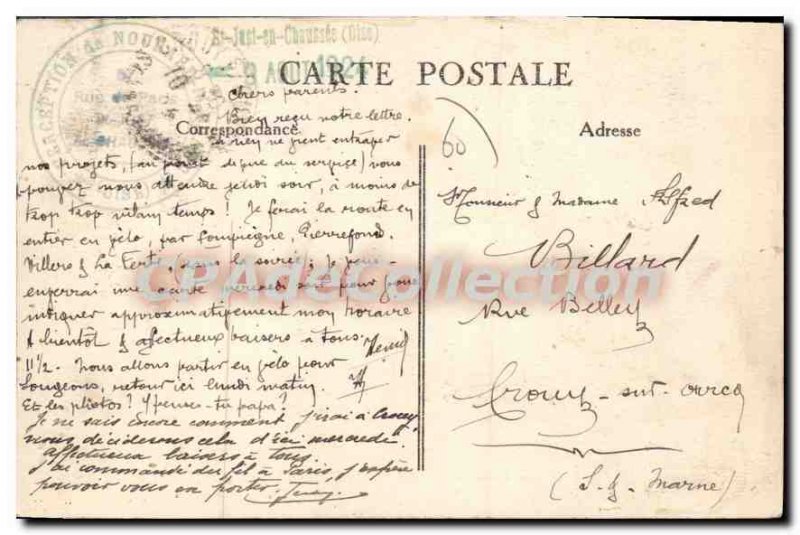 St-Just-en-Chaussée (Oise)
9 AOUT 1924
CARTE POSTALE
Correspondance
Adresse
Chers parents.
Bien reçu notre lettre.
Si rien ne vient entraver
nos projets, (au point de vue du service) vous
pouvez nous attendre jeudi soir, à moins de
trop trop vilain temps! Je ferai la route en
entier en vélo, par Compiègne, Pierrefond.
Villers & La Ferté, (dans la soirée); Je vous
enverrai une carte mercredi soir pour vous
indiquer approximativement mon horaire
A bientôt & affectueux baisers à tous.
11 1/2. Nous allons partir en vélo pour
Songeons, retour ici lundi matin.
Et les photos? Y penses-tu papa?
Je ne sais encore comment j'irai à Crouy,
nous déciderons cela d'ici mercredi.
Affectueux baisers à tous.
J'ai commandé du fil à Paris, j'espère
pouvoir vous en porter.
60
Monsieur & Madame Alfred
Billard
Rue Belley
Crouy-sur-ourcq
(S. & Marne)
CPAdeCollection